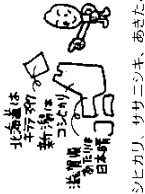 北海道は
キララ397
新潟は
コシヒカリ
滋賀県
あたりは
日本晴
シヒカリ、ササニシキ、あきた